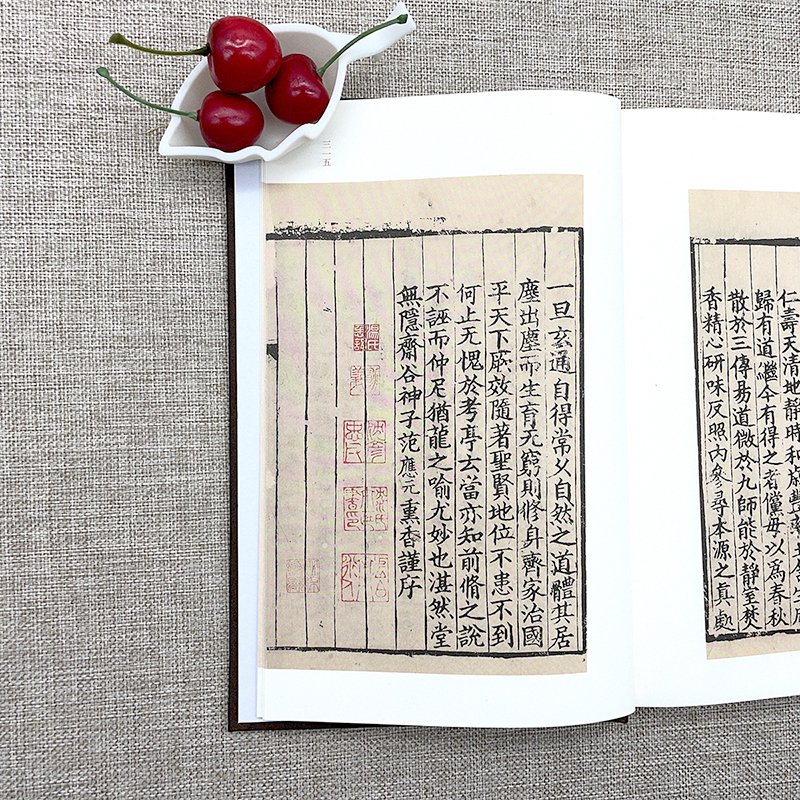 仁壽天清地靜時和歲豐
歸有道繼今有得之者儻毋以爲春秋
散於三傳易道微於九師能於靜室焚
香精心研味反照內參尋本源之真處
三一五
一旦玄通自得常久自然之道體其居
塵出塵而生育无窮則修身齊家治國
平天下厥效隨著聖賢地位不患不到
何止无愧於考亭去當亦知前脩之說
不誣而仲尼猶龍之喻尤妙也湛然堂
無隱齋谷神子范應元熏香謹序